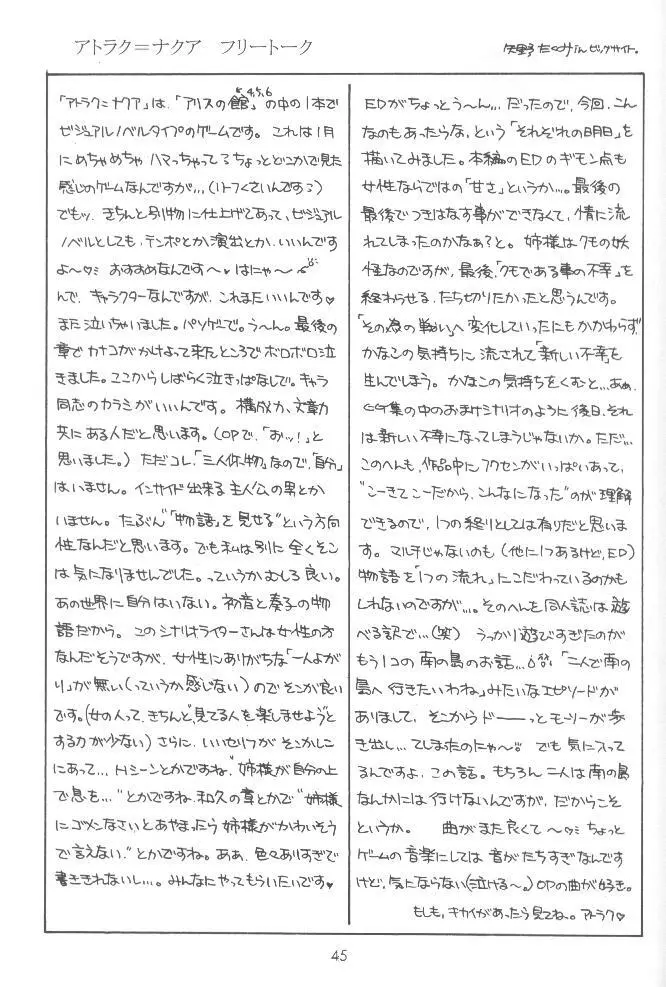 アトラク＝ナクア　フリートーク
矢野たくみinビッグサイト。
「アトラク=ナクア」は、「アリスの館4,5,6」の中の1本で
ビジュアルノベルタイプのゲームです。これは1月
にめちゃめちゃハマっちゃってるちょっとどこかで見た
感じのゲームなんですが…、(リトフくさいんです？)
でもッ、きちんと別物に仕上げてあって、ビジュアル
ノベルとしても、テンポとか演出とか、いいんです
よ〜♡ おすすめなんです〜♥はにゃ〜
んで、キャラクターなんですが、これまたいいんです♡
また泣いちゃいました。パソゲで。う〜ん。最後の
章でカナコがかけよって来たところでボロボロ泣
きました。ここからしばらく泣きっぱなしで。キャラ
同志のカラミがいいんです。構成力、文章力
共にある人だと思います。(OPで、「おッ！」と
思いました。) ただコレ、「三人体物」なので、「自分」
はいません。インサイド出来る主人公の男とか
いません。たぶん"「物語」を見せる"という方向
性なんだと思います。でも私は別に全くそこ
は気になりませんでした。っていうかむしろ良い。
あの世界に自分はいない。初音と奏子の物
語だから。このシナリオライターさんは女性の方
なんだそうですが、女性にありがちな「一人よが
り」が無い(っていうか感じない)のでそこが良い
です。(女の人って、きちんと"見てる人を楽しませよう"と
する力が少ない) さらに、いいセリフがそこかしこ
にあって…、Hシーンとかですね、"姉様が自分の上
で息を…"とかですね、和久の章とかで"姉様
にゴメンなさいとあやまったら姉様がかわいそう
で言えない"とかですね。ああ、色々ありすぎて
書ききれないし…。みんなにやってもらいたいです♥
EDがちょっとう〜ん…だったので、今回、こん
なのもあったらな、という「それぞれの明日」を
描いてみました。本編のEDのギモン点も
女性ならではの「甘さ」というか…。最後の
最後でつきはなす事ができなくて、情に流
れてしまったのかなぁ?と。姉様はクモの妖
怪なのですが、最後、「クモである事の不幸」を
終わらせる、たち切りたかったと思うんです。
「その為の戦い」へ変化していったにもかかわらず、
かなこの気持ちに流されて「新しい不幸」を
生んでしまう。かなこの気持ちをくむと…あぁ、
CG集の中のおまけシナリオのように後日、それ
は新しい不幸になってしまうじゃないか。ただ…、
このへんも、作品中にフクセンがいっぱいあって、
"こーきてこーだから、こんなになった"のが理解
できるので、1つの終りとしては有りだと思いま
す。マルチじゃないのも(他に1つあるけど、ED)
物語を「1つの流れ」にこだわっているのかも
しれないのですが…。そのへんを同人誌は遊
べる訳で…(笑) うっかり遊びすぎたのが
もう1コの南の島のお話…。「二人で南の
島へ行きたいわね」みたいなエピソードが
ありまして、そこからドーーーっとモーソーが歩
き出し…てしまったのにゃ〜 でも気に入って
るんですよ、この話。もちろん二人は南の島
なんかには行けないんですが、だからこそ
というか。　曲がまた良くて〜♡ ちょっと
ゲームの音楽にしては音がたちすぎなんです
けど、気にならない(泣ける〜。) OPの曲が好き。
もしも、キカイがあったら見てね。アトラク♡
45